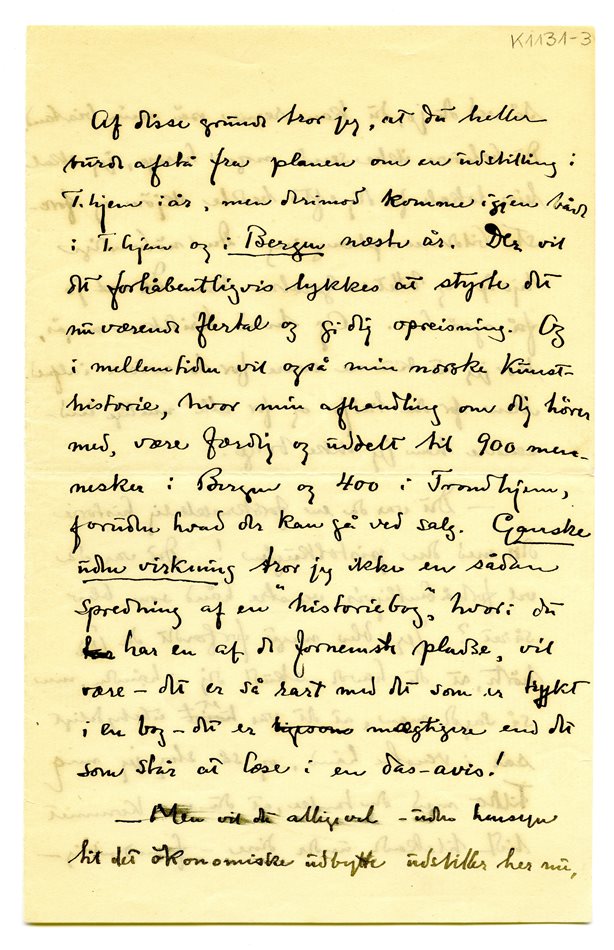 K1131-3
Af disse grunde tror jeg, at du heller
burde afstå fra planen om en udstilling i
T.hjem i år, men derimod komme igjen både
i T.hjem og i Bergen næste år. Der vil
det forhåbentligvis lykkes at styrte det
nuværende flertal og gi dig opreisning. Og
i mellemtiden vil også min norske Kunst-
historie, hvor min afhandling om dig hører
med, være færdig og uddelt til 900 men-
nesker i Bergen og 400 i Trondhjem,
foruden hvad der kan gå ved salg. Ganske
uden virkning tror jeg ikke en sådan
spredning af en "historiebog", hvori du
har en af de fornemste pladse, vil
være – det er så rart med det som er trykt
i en bog – det er mægtigere end det
som står at læse i en das-avis!
— Men vil du alligevel – uden hensyn
til det økonomiske udbytte udstiller her nu,